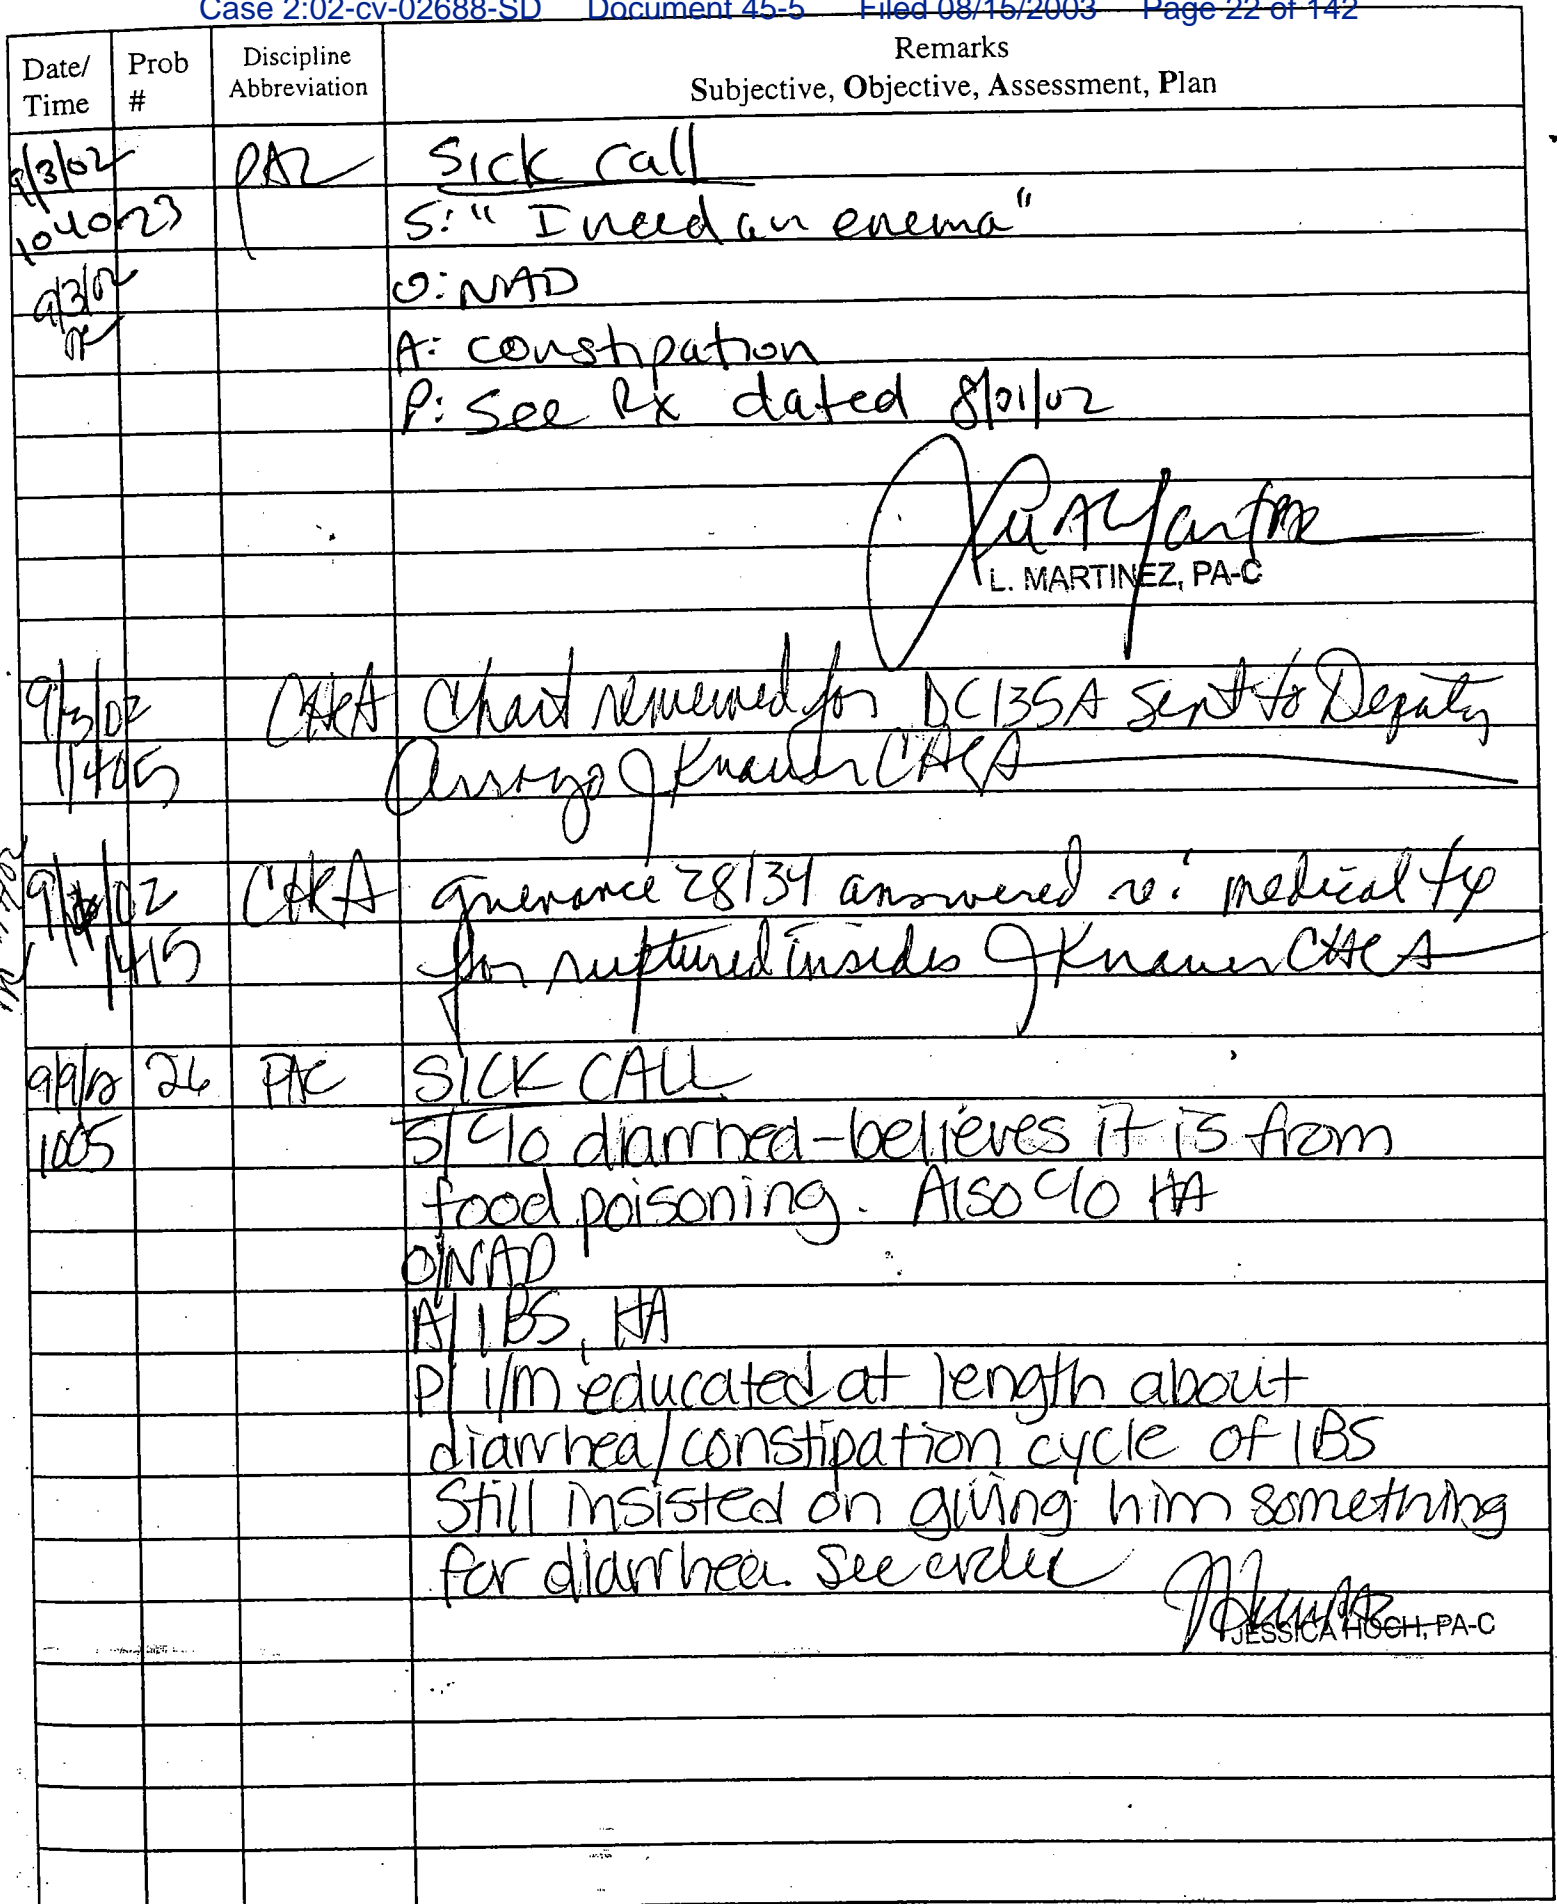 Case 2:02-cv-02688-SD Document 45-5 Filed 08/15/2003 Page 22 of 142
Date/ Time
Prob #
Discipline Abbreviation
Remarks
Subjective, Objective, Assessment, Plan
9/3/02 Sick Call
1040 23 S: " I need an enema"
9/3/02 O: NAD
A: constipation
P: See Rx dated 8/01/02
L. MARTINEZ, PA-C
9/3/02 CHCA Chart reviewed for DC135A sent to Deputy
1405 Arroyo J Knauer CHCA
02 CHCA grievance 28134 answered re: medical tx
1415 for ruptured insides J Knauer CHCA
9/9/02 26 PAC SICK CALL
1005 S/ c/o diarrhea - believes it is from
food poisoning. Also c/o HA
O/ NAD
A/ IBS, HA
P/ i/m educated at length about
diarrhea/constipation cycle of IBS
Still insisted on giving him something
for diarrhea. See order
JESSICA HOCH, PA-C